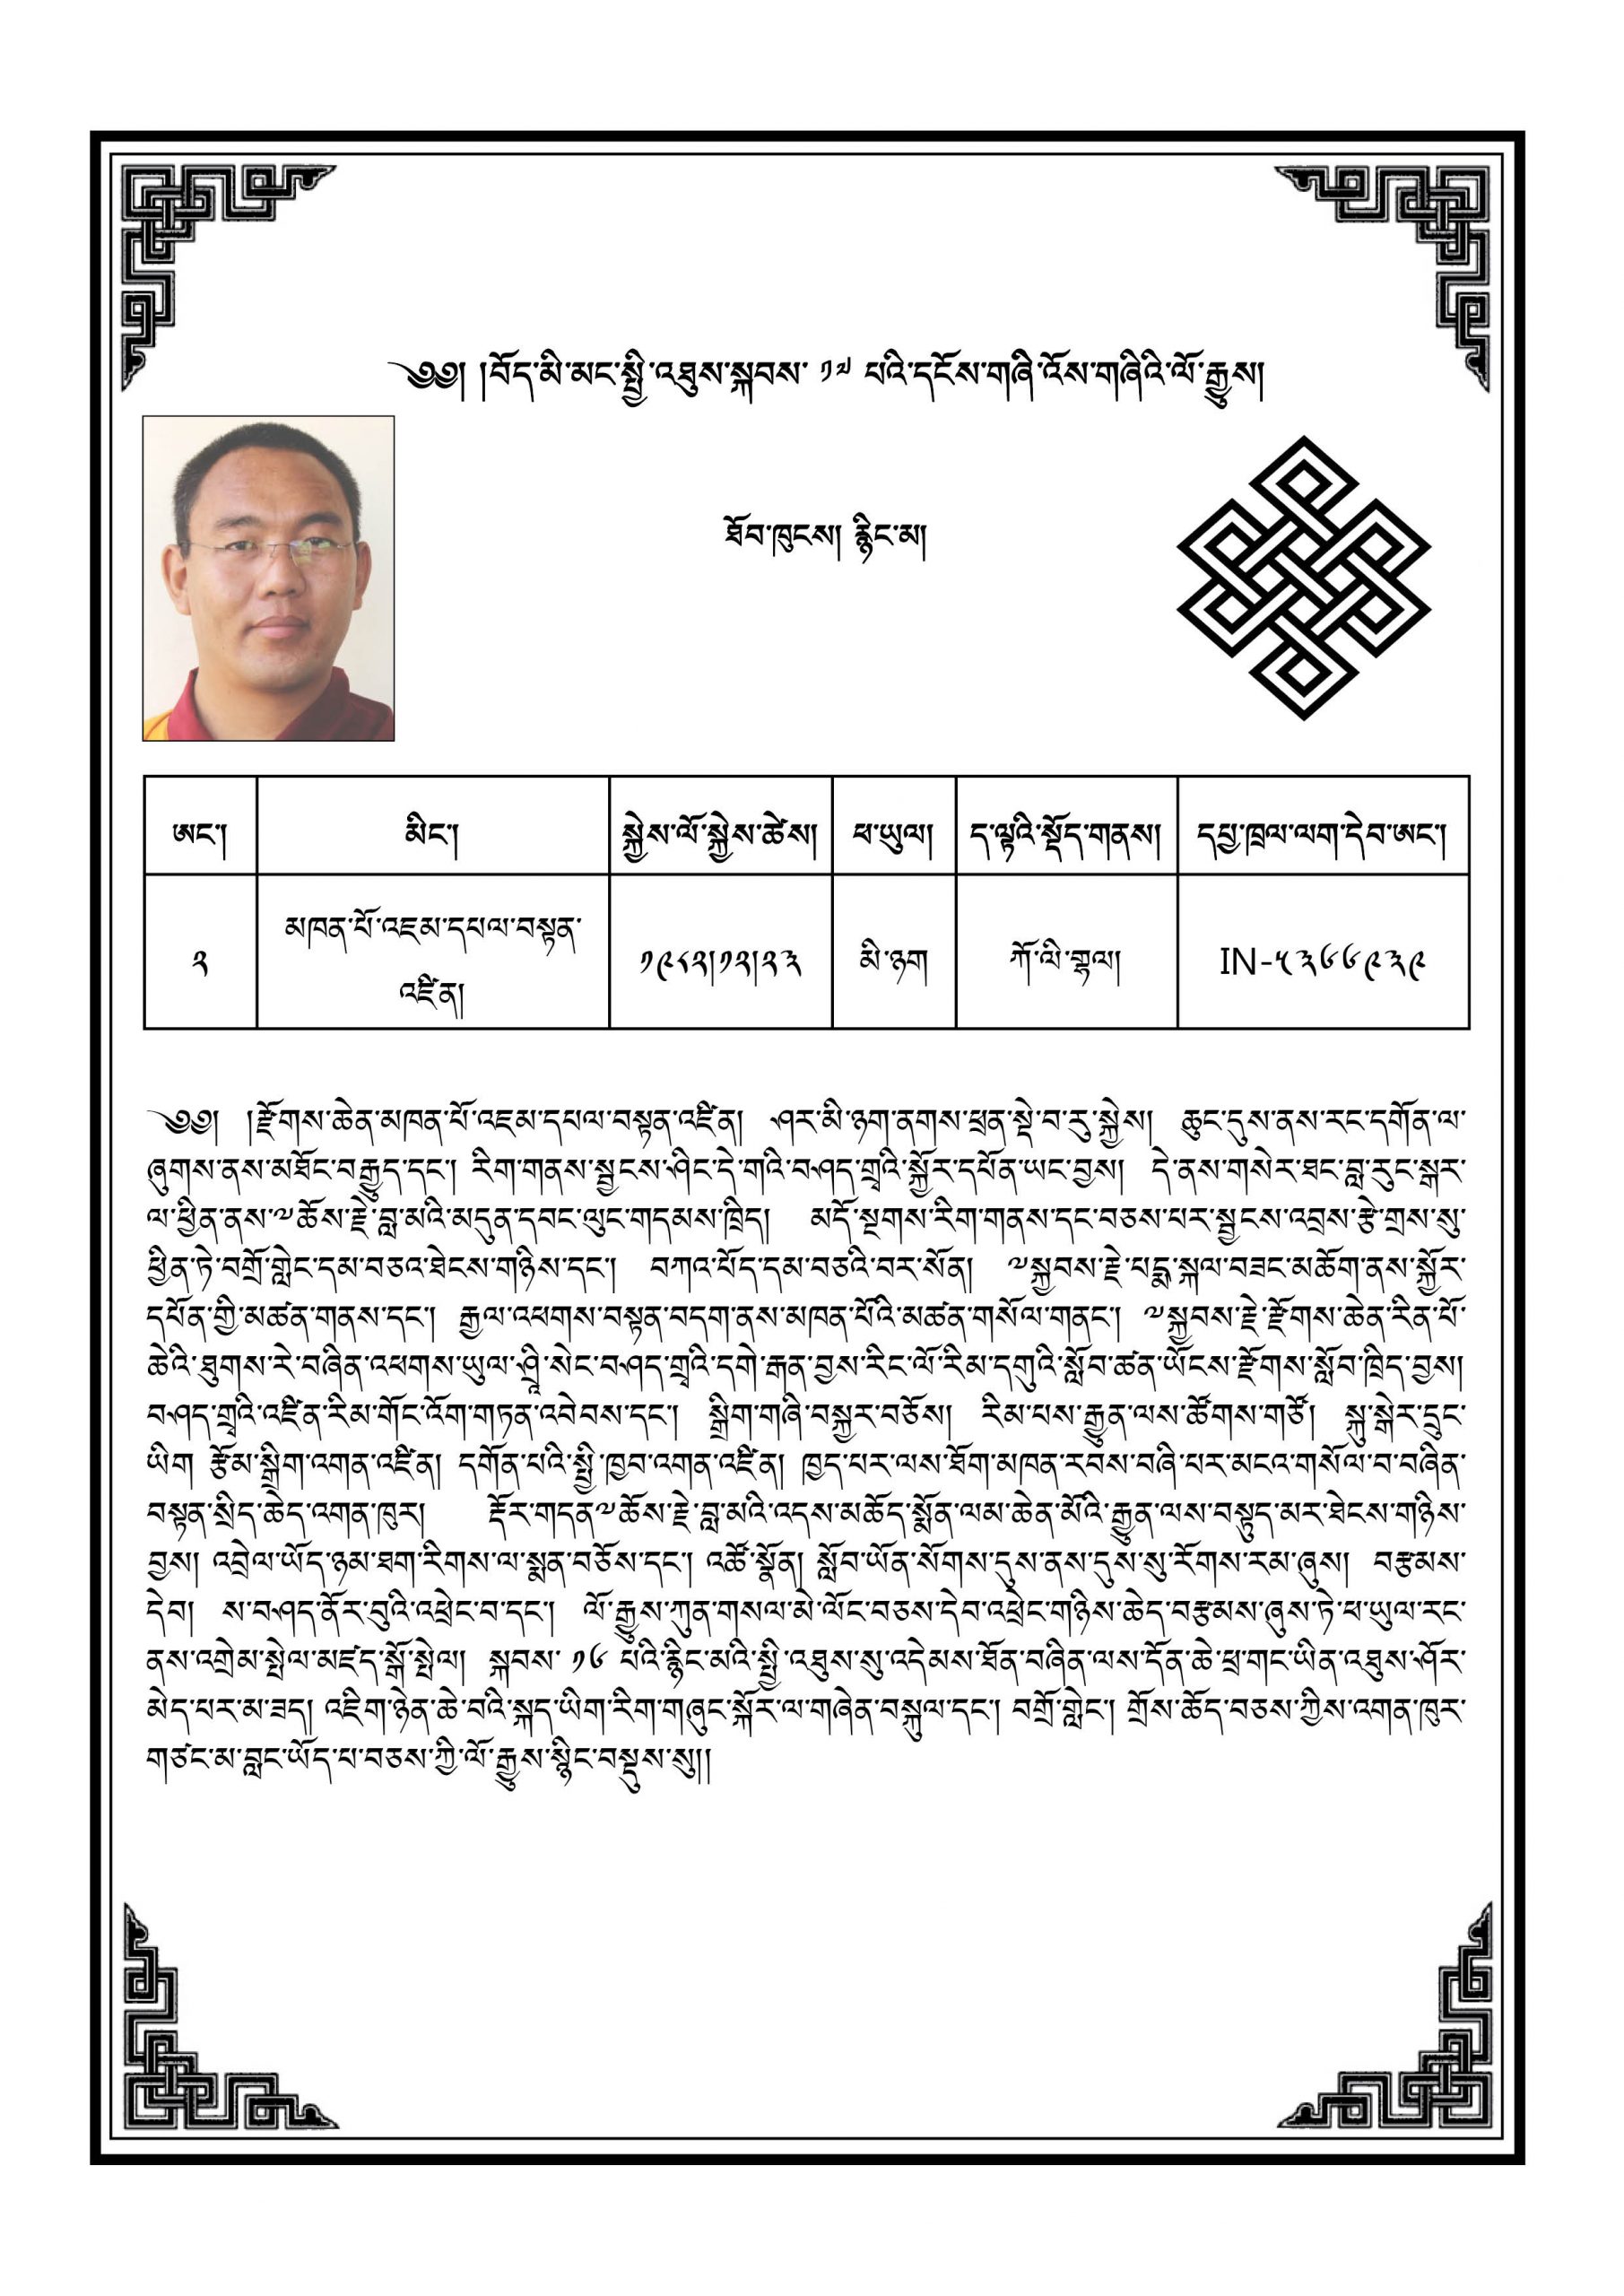 ༄༅། །བོད་མི་མང་སྤྱི་འཐུས་སྐབས་ ༡༧ པའི་དངོས་གཞི་འོས་གཞིའི་ལོ་རྒྱུས།
ཐོབ་ཁུངས། རྙིང་མ།
ཨང་། མིང་། སྐྱེས་ལོ་སྐྱེས་ཚེས། ཕ་ཡུལ། ད་ལྟའི་སྡོད་གནས། དཔྱ་ཁྲལ་ལག་དེབ་ཨང་།
༢ མཁན་པོ་འཇམ་དཔལ་བསྟན་ ༡༩༨༢།༡༢།༢༣ མི་ཉག ཀོ་ལི་གྷལ། IN-༥༣༦༦༩༣༩
འཛིན།
༄༅། །རྫོགས་ཆེན་མཁན་པོ་འཇམ་དཔལ་བསྟན་འཛིན། ཤར་མི་ཉག་ནགས་ཕྲན་སྡེ་བ་རུ་སྐྱེས། ཆུང་དུས་ནས་རང་དགོན་ལ་
ཞུགས་ནས་མཐོང་བརྒྱུད་དང་། རིག་གནས་སྦྱངས་ཤིང་དེ་གའི་བཤད་གྲྭའི་སྐྱོར་དཔོན་ཡང་བྱས། དེ་ནས་གསེར་ཐང་བླ་རུང་སྒར་
ལ་ཕྱིན་ནས་༧ཆོས་རྗེ་བླ་མའི་མདུན་དབང་ལུང་གདམས་ཁྲིད། མདོ་སྔགས་རིག་གནས་དང་བཅས་པར་སྦྱངས་འབྲས་རྩེ་གྲས་སུ་
ཕྱིན་ཏེ་བགྲོ་གླེང་དམ་བཅའ་ཐེངས་གཉིས་དང་། བཀའ་པོད་དམ་བཅའི་བར་སོན། ༧སྐྱབས་རྗེ་པདྨ་སྐལ་བཟང་མཆོག་ནས་སྐྱོར་
དཔོན་གྱི་མཚན་གནས་དང་། རྒྱལ་འཕགས་བསྟན་བདག་ནས་མཁན་པོའི་མཚན་གསོལ་གནང་། ༧སྐྱབས་རྗེ་རྫོགས་ཆེན་རིན་པོ་
ཆེའི་ཐུགས་རེ་བཞིན་འཕགས་ཡུལ་ཤྲཱི་སེང་བཤད་གྲྭའི་དགེ་རྒན་བྱས་རིང་ལོ་རིམ་དགུའི་སློབ་ཚན་ཡོངས་རྫོགས་སློབ་ཁྲིད་བྱས།
བཤད་གྲྭའི་འཛིན་རིམ་གོང་འོག་གཏན་འབེབས་དང་། སྒྲིག་གཞི་བསྐྱར་བཅོས། རིམ་པས་རྒྱུན་ལས་ཚོགས་གཙོ། སྐུ་སྒེར་དྲུང་
ཡིག རྩོམ་སྒྲིག་འགན་འཛིན། དགོན་པའི་སྤྱི་ཁྱབ་འགན་འཛིན། ཁྱད་པར་ལས་ཐོག་མཁན་རབས་བཞི་པར་མངའ་གསོལ་བ་བཞིན་
བསྟན་སྲིད་ཆེད་འགན་ཁུར། རྡོར་གདན་༧ཆོས་རྗེ་བླ་མའི་འདས་མཆོད་སྨོན་ལམ་ཆེན་མོའི་རྒྱུན་ལས་བསྟུད་མར་ཐེངས་གཉིས་
བྱས། འབྲེལ་ཡོད་ཉམ་ཐག་རིགས་ལ་སྨན་བཅོས་དང་། འཚོ་སྣོན། སློབ་ཡོན་སོགས་དུས་ནས་དུས་སུ་རོགས་རམ་ཞུས། བརྩམས་
དེབ། ས་བཤད་ནོར་བུའི་འཕྲེང་བ་དང་། ལོ་རྒྱུས་ཀུན་གསལ་མེ་ལོང་བཅས་དེབ་འཕྲེང་གཉིས་ཆེད་བརྩམས་ཞུས་ཏེ་ཕ་ཡུལ་རང་
ནས་འགྲེམ་སྤེལ་མཛད་སྒོ་སྤེལ། སྐབས་ ༡༦ པའི་རྙིང་མའི་སྤྱི་འཐུས་སུ་འདེམས་ཐོན་བཞིན་ལས་དོན་ཆེ་ཕྲ་གང་ཡིན་འཐུས་ཤོར་
མེད་པར་མ་ཟད། འཇིག་ཉེན་ཆེ་བའི་སྐད་ཡིག་རིག་གཞུང་སྐོར་ལ་གཞེན་བསྐུལ་དང་། བགྲོ་གླེང་། གྲོས་ཆོད་བཅས་ཀྱིས་འགན་ཁུར་
གཙང་མ་བླང་ཡོད་པ་བཅས་ཀྱི་ལོ་རྒྱུས་སྙིང་བསྡུས་སུ།།